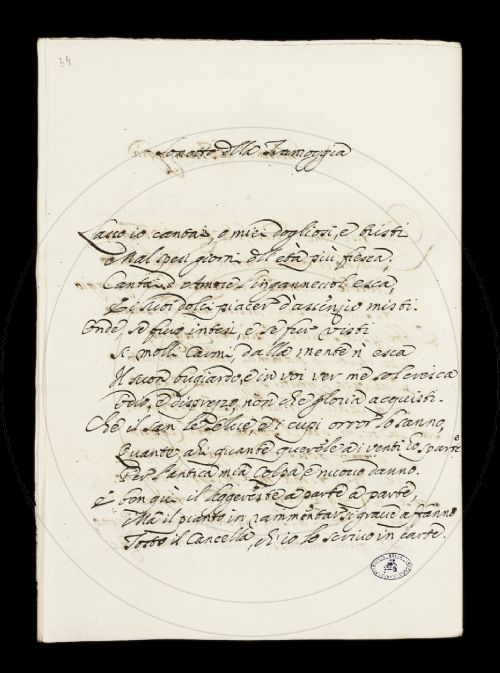 34
Sonetto della Tramoggia
Lasso io cantai, o miei dogliosi, e tristi
e Mal spesi giorni dell'età più fresca,
Cantai d'Amore l'ingannevol esca,
E i suoi dolci piacer d'assenzio misti.
Onde, se furo intesi, e se fur visti
Si molli Carmi, dalla mente n'esca
Il suon bugiardo, e in voi ver me sol cresca
Odio, e disprezzo, non che gloria acquisti.
Che il san le selve, e i cupi orror lo sanno,
Quante, ah quante querele ai venti ho sparte
Per l'antica mia Colpa, e nuovo danno.
E con qui il leggereste a parte a parte,
Ma il pianto in rammentar sì grave affanno
Tosto il Cancella, ch'io lo scrivo in carte.